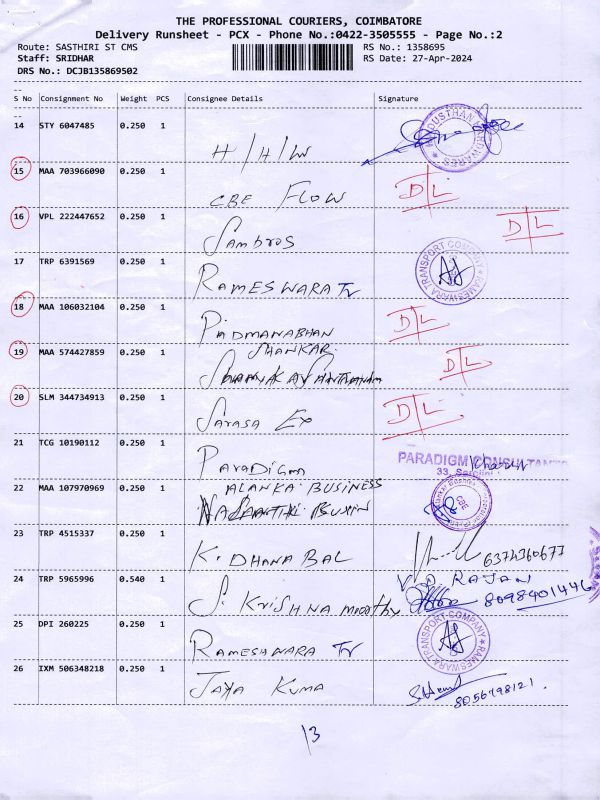 THE PROFESSIONAL COURIERS, COIMBATORE
Delivery Runsheet - PCX - Phone No.:0422-3505555 - Page No.:2
Route: SASTHIRI ST CMS RS No.: 1358695
Staff: SRIDHAR RS Date: 27-Apr-2024
DRS No.: DCJB135869502
S No Consignment No Weight PCS Consignee Details Signature
14 STY 6047485 0.250 1 H/H/W
HINDUSTHAN HARDWARES
15 MAA 703966090 0.250 1 CBE FLOW D/L
16 VPL 222447652 0.250 1 Sambros D/L
17 TRP 6391569 0.250 1 RAMESWARA Tr
RAMESWARA TRANSPORT COMPANY
18 MAA 106032104 0.250 1 PADMANABHAN D/L
19 MAA 574427859 0.250 1 SHANKAR D/L
20 SLM 344734913 0.250 1 Sarasa Ex D/L
21 TCG 10190112 0.250 1 Paradigm
PARADIGM CONSULTANTS
33,
22 MAA 107970969 0.250 1 ALANKA BUSINESS
CBE
23 TRP 4515337 0.250 1 K. DHANA BAL 6374360677
24 TRP 5965996 0.540 1 S. Krishna moorthy V. D. RAJAN
8098401446
25 DPI 260225 0.250 1 RAMESHWARA Tr
RAMESWARA TRANSPORT COMPANY
26 IXM 506348218 0.250 1 JAYA KUMA
8056798121.
13